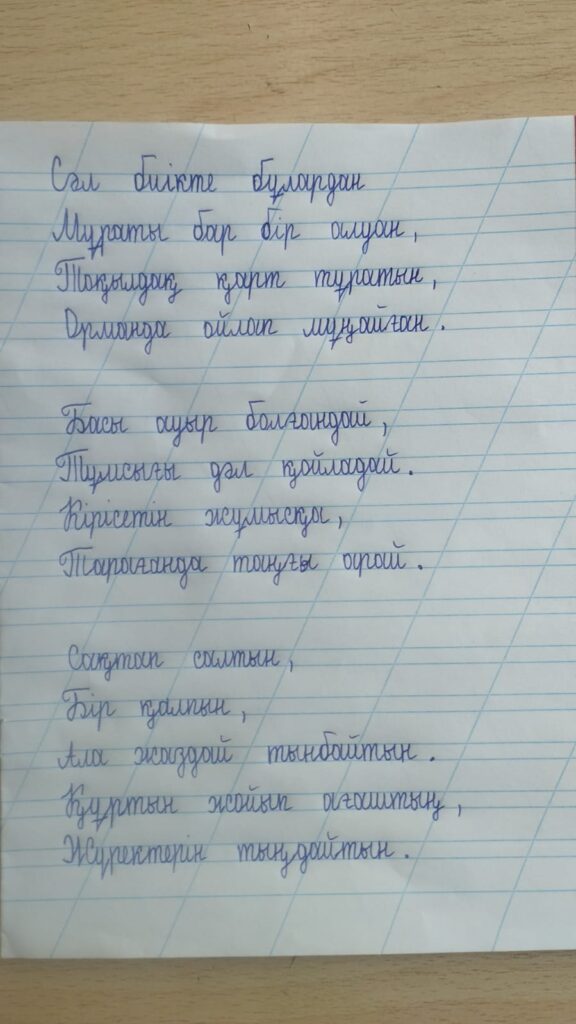 Сәл биікте бұлардан
Мұраты бар бір алуан,
Тоқылдақ қарт тұратын,
Орманда ойлап мұңайған.
Басы ауыр болғандай,
Тұмсығы дәл қойладай.
Кірісетін жұмысқа,
Тарағанда таңғы арай.
Сақтап салтын,
Бір қалпын,
Ала жаздай тынбайтын.
Құртын жойып ағаштың,
Жүректерін тыңдайтын.